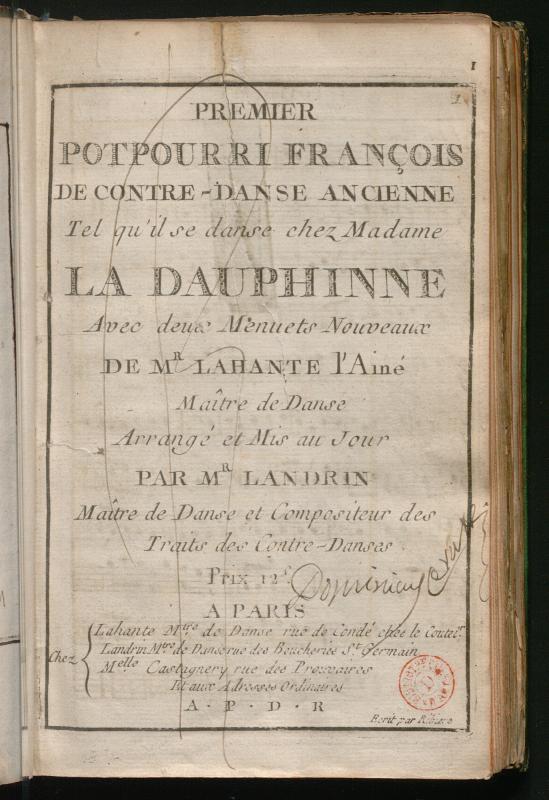 1
1
PREMIER
POTPOURRI FRANÇOIS
DE CONTRE-DANSE ANCIENNE
Tel qu'il se danse chez Madame
LA DAUPHINNE
Avec deux Menuets Nouveaux
DE MR LAHANTE l'Ainé
Maître de Danse
Arrangé et Mis au Jour
PAR MR LANDRIN
Maître de Danse et Compositeur des
Traits des Contre-Danses
Prix 12s
A PARIS
Chez
Lahante Mtre de Danse rue de Condé chez le Coutelr
Landrin Mtre de Danse rue des Boucheries St Germain
Melle Castagnery rue des Prouvaires
Et aux Adresses Ordinaires
A·P·D·R
Ecrit par Ribiere